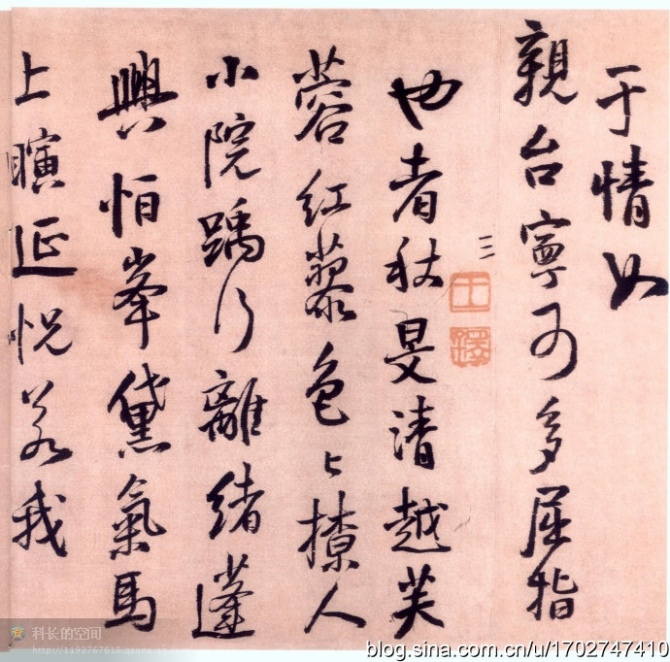 于情如
親台寧可多屈指
三
王鐸
也者秋旻清越芙
蓉紅蓼色々撩人
小院踽行離緒蓬
興怕峯黛氣馬
上瞑延悅若我
科长的空间
blog.sina.com.cn/u/1702747410